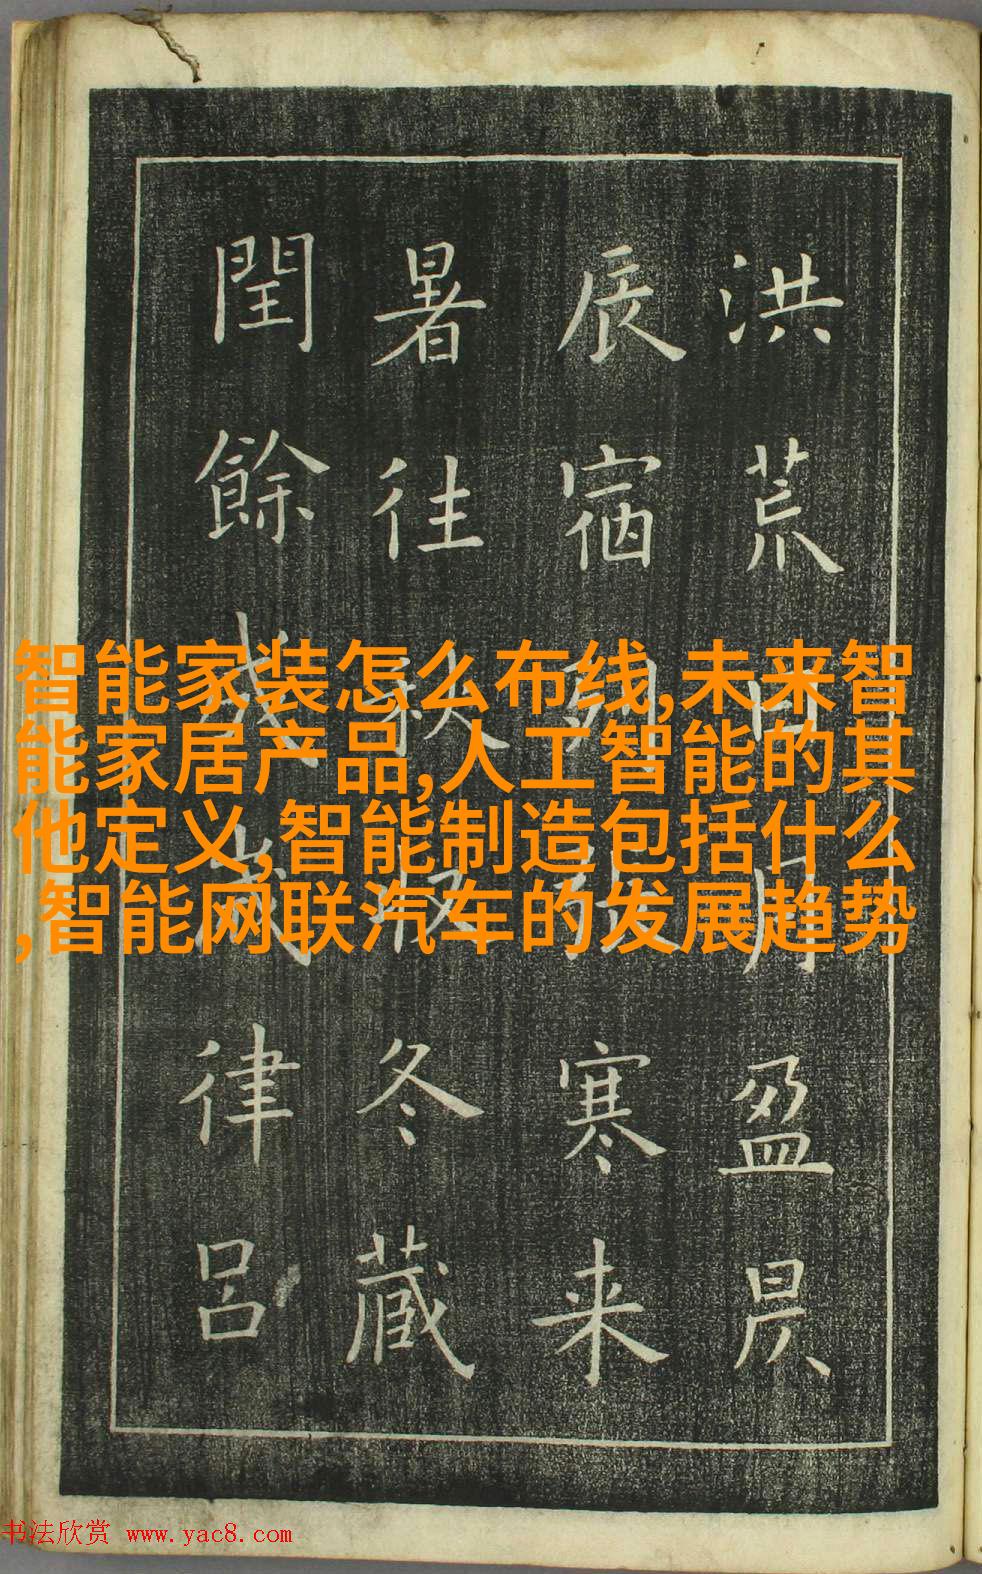 洪荒日月盈昃
辰宿列張寒来
暑往秋收冬藏
閏餘成歲律吕
智能家装怎么布线,未来智
能家居产品,人工智能的其
他定义,智能制造包括什么
,智能网联汽车的发展趋势
书法欣赏 www.yac8.com